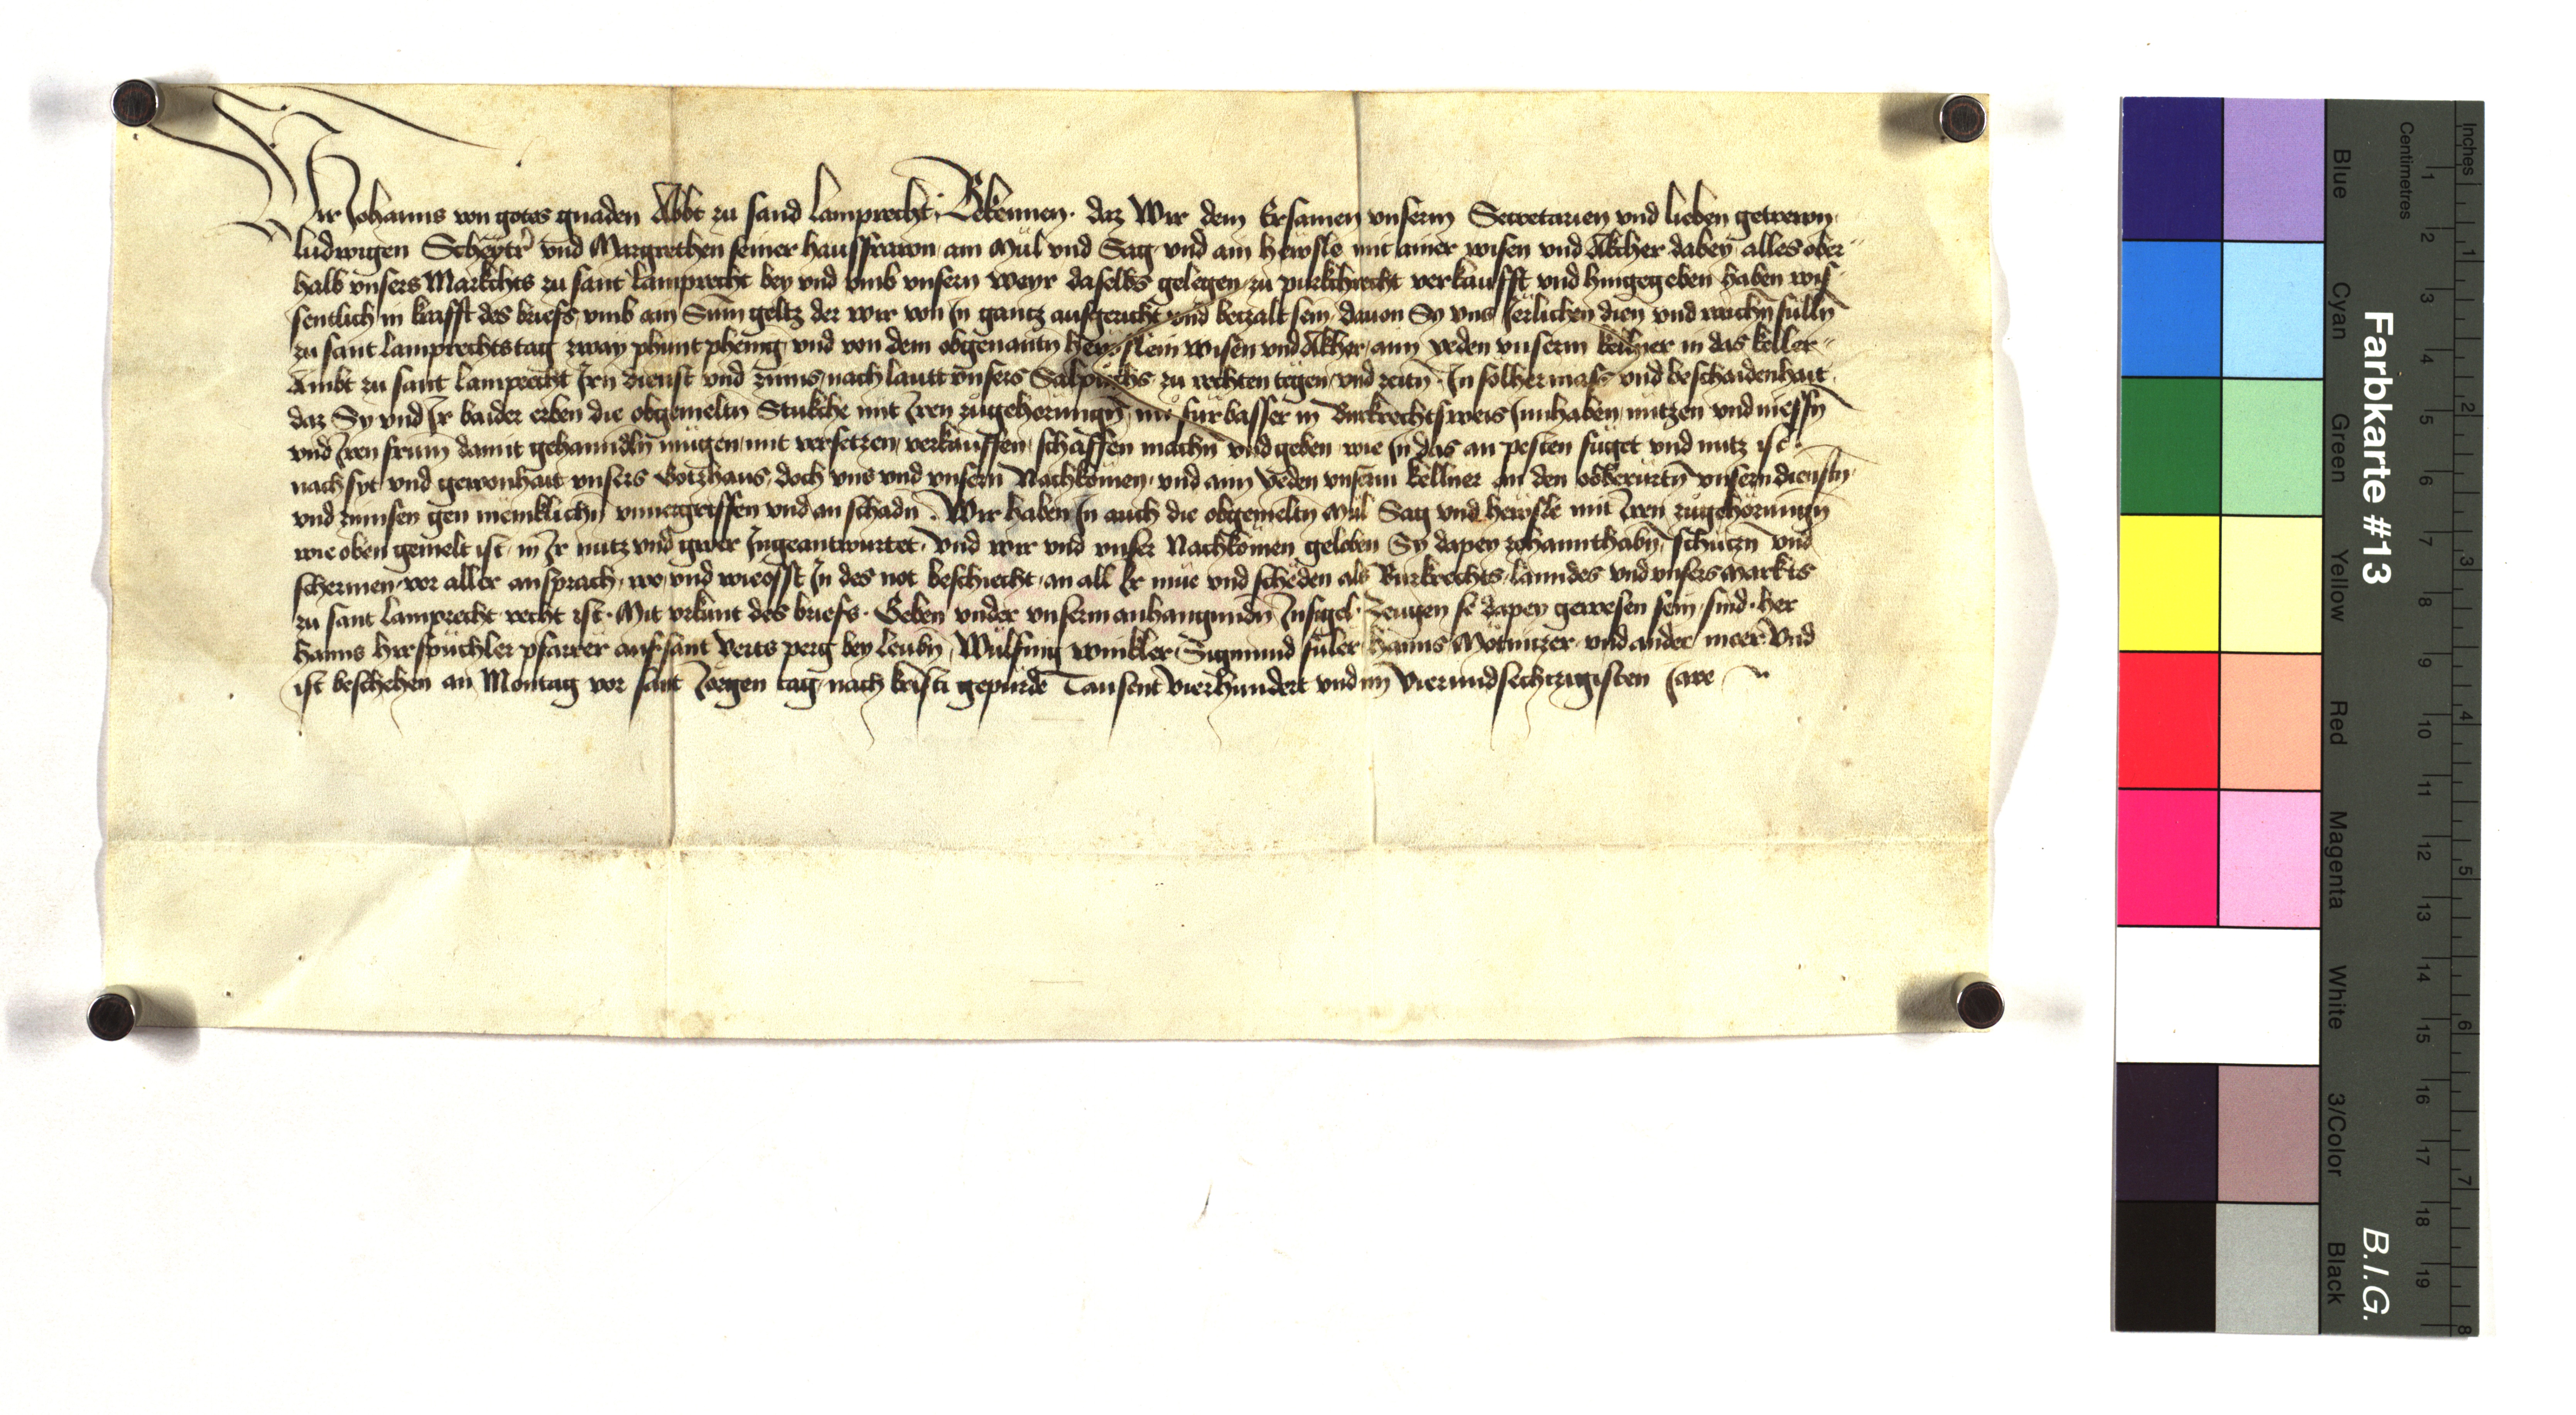 Wir Johanns von gotes gnaden Abbt zu sand Lamprecht, Bekennen. daz Wir dem Ersamen vnserm Secretarien vnd lieben getrewn
Ludwigen Scheytr vnd Margrethen seiner hausfrawn, am Mül vnd Sag, vnd ain hewsle mit ainer wisen vnd Äkcher dabey, alles ober
halb vnsers Markchts zu sant Lamprecht bey vnd vmb vnsern weyr daselbs gelegen, zu purkchrecht verkaufft vnd hingegeben haben wis
sentlich in krafft des briefs, vmb ain Sum geltz der wir von In gantz ausgericht vnd betzalt sein, dauon Sy vns Jerlichen dien vnd raichn sulln
zu sant Lamprechtstag zway phunt phening vnd von dem obgenantn hewslein wisen vnd Äkher, aim yeden vnserm kellner in das keller
Ambt zu sant Lamprecht Irn dienst vnd zinns, nach lautt vnsers Salpuchs, zu rechten tegen, vnd zeitn. In solher mass vnd beschaidenhait
daz Sy vnd Ir baider erben die obgemeltn Stukche mit Iren zugehorungn, nu fürbasser in Burkrechtsweis Innhaben, nutzen vnd niessn
vnd Iren frum damit gehanndln mügen, mit versetzen, verkauffen, schaffen machn vnd geben wie In das am pesten füget vnd nutz ist
nach syt vnd gewonhait vnsers Gotzhaus, doch vns vnd vnsern Nachkomen, vnd aim yeden vnserm kellner an den obberürtn vnsern dienstn
vnd zinnsen gen meniklichn vnuergriffen vnd an schadn. Wir haben In auch die obgemeltn Mül Sag vnd hewsle mit Iren zugehörungn
wie oben gemelt ist, in Ir nutz vnd gwer Ingeantwurtet, Vnd wir vnd vnser Nachkomen geloben Sy dapey zehannthabn, schützn vnd
schermen, vor aller ansprach, wo vnd wieofft In des not beschiecht, an all Ir müe vnd scheden als Burkrechts, lanndes vnd vnsers Markts
zu sant Lamprecht recht ist. Mit vrkunt des briefs. Geben vnder vnserm anhangunden Insigel. Zeugen so dapey gewesen sein, sind. her
Hanns hirspuchler pfarrer auf sant Veits perg bey Leubn, Wülfing Winkler, Sigmund füler, Hanns Mötnitzer, vnd ander meer Vnd
ist beschehen an Montag vor sant Jörgen tag, nach kristi gepurde Tausent Vierhundert vnd im Vierundsechtzigisten Jare
Farbkarte #13
B.I.G.
Inches
Centimetres
Blue
Cyan
Green
Yellow
Red
Magenta
White
3/Color
Black
1 2 3 4 5 6 7 8 9 10 11 12 13 14 15 16 17 18 19
1 2 3 4 5 6 7 8